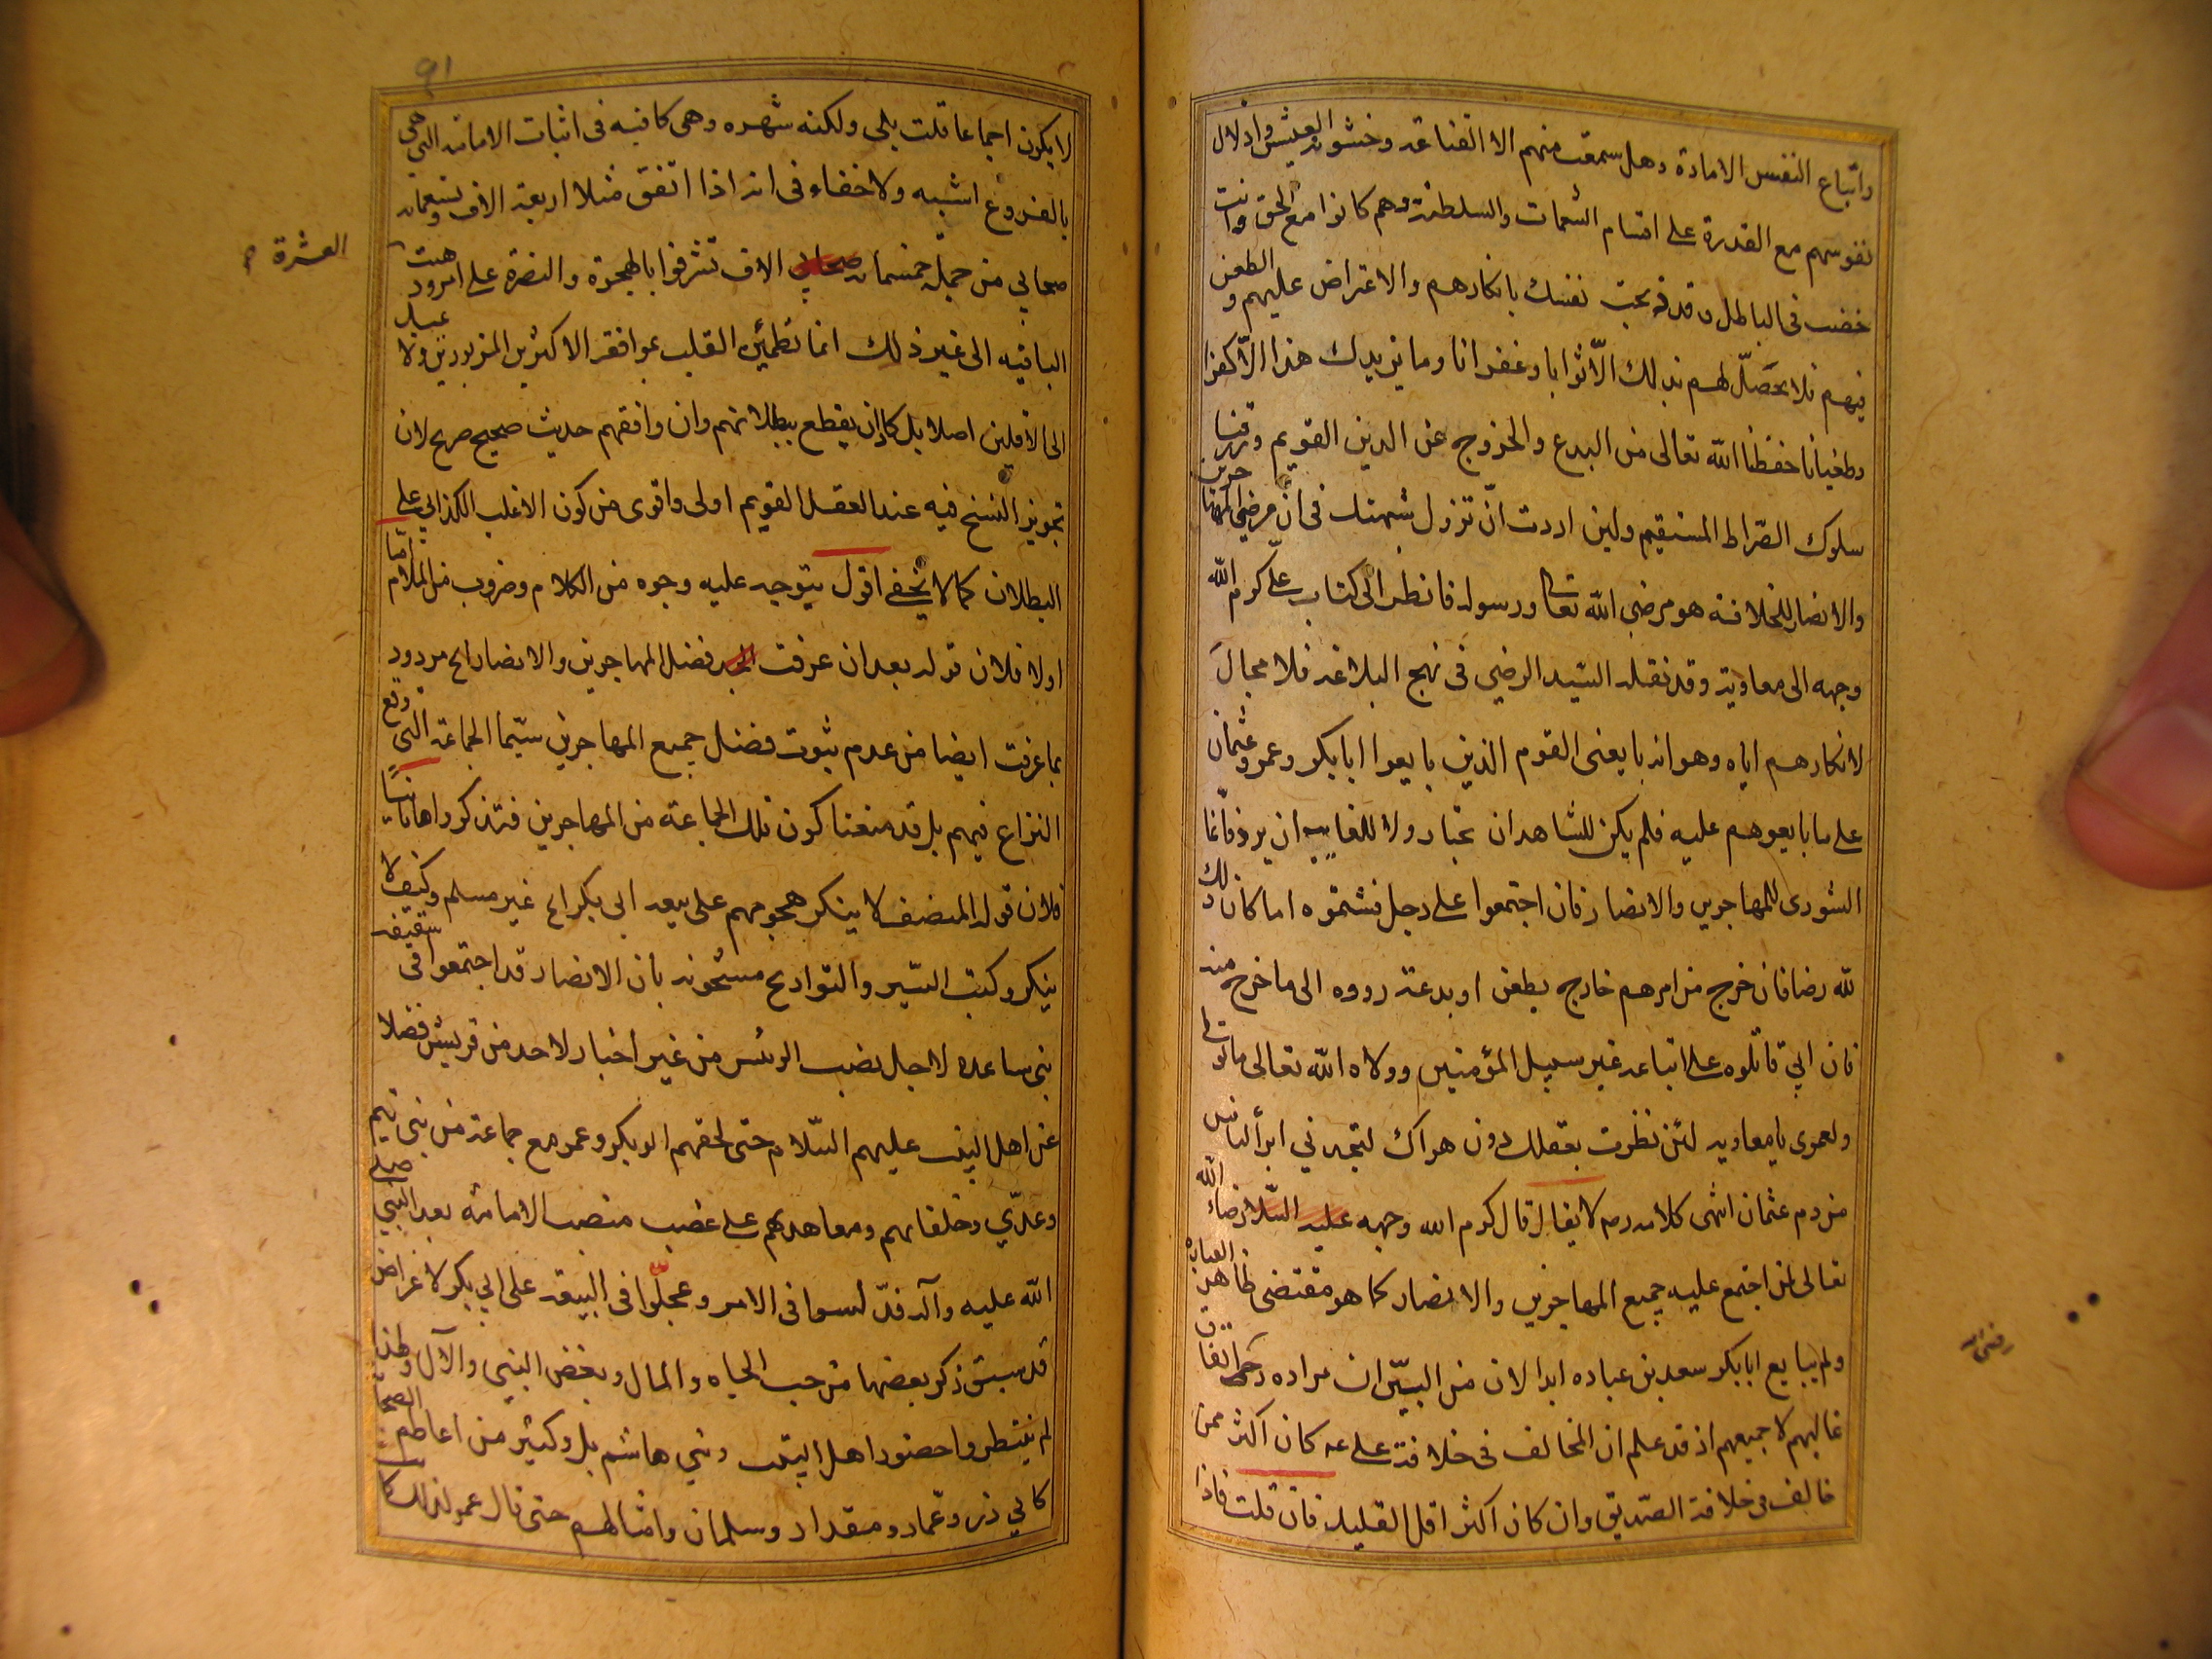 واتباع النفس الامارة وهل سمعت منهم الا القناعة وخشونة العيش واذلال
نفوسهم مع القدرة على اقسام التنعمات والسلطنة وهم كانوا مع الحق وانت
خضت في الباطل وقد فرحت نفسك بانكارهم والاعتراض عليهم والطعن
فيهم فلا يحصل لهم بذلك الّا ثوابا وغفرانا وما يزيدك هذا الّا كفرا
وطغيانا حفظنا الله تعالى من البدع والخروج عن الدين القويم ورزقنا
سلوك الصراط المستقيم ولين اردت انّ تزول شبهتك في انّ مرضي المهاجرين
والانصار للخلافة هو مرضي الله تعالى ورسوله فانظر الى كتاب علي كرم الله
وجهه الى معاوية وقد نقله السّيد الرضي في نهج البلاغه فلا مجال
لانكارهم اياه وهو انه بايعني القوم الذين بايعوا ابابكر وعمر وعثمان
على ما بايعوهم عليه فلم يكن للشاهد ان يختار ولا للغايب ان يرد فانّما
الشورى للمهاجرين والانصار فان اجتمعوا على رجل فسّموه اما كان ذلك
لله رضا فان خرج من امرهم خارج بطعن او بدعة ردوه الى ما خرج منه
فان ابي قاتلوه على اتباعه غير سبيل المؤمنين وولاه الله تعالى ما تولى
ولعمري يا معاويه لئن نظرت بعقلك دون هواك لتجدني ابرأ الناس
من دم عثمان انتهى كلامه رم لا يقال قال كرم الله وجهه عليه السّلام رضاء الله
تعالى لمن اجتمع عليه جميع المهاجرين والانصار كما هو مقتضى ظاهر العباره
ولم يبايع ابابكر سعد بن عباده ابدا لان من البيّن ان مراده رضي اتفاق
غالبهم لا جميعهم اذ قد علم ان المخالف في خلافة علي عه كان اكثر ممن
خالف في خلافة الصّديق وان كان اكثر اقل القليل فان قلت فاذا
رضي الله
٩١
لا يكون اجماعا قلت بلى ولكنه شهره وهي كافيه في اثبات الامامة التي هي
بالفروع اشبه ولا خفاء في انه اذا اتفق مثلا اربعة الاف وتسعمايه
صحابي من جملة خمسمايه صحابي الاف تشرفوا بالهجرة والنصرة على امر وذهبت
العشرة
الباقيه الى غير ذلك انما تطمئن القلب بموافقة الاكثرين المزبورين ولا يميل
الى الاقلين اصلا بل كاد ان يقطع ببطلانهم وان وافقهم حديث صحيح صريح لان
تجويز النسخ فيه عند العقل القويم اولى واقوى من كون الاغلب الكذائي على
البطلان كما لا يخفى اقول يتوجه عليه وجوه من الكلام وضروب من الملام امّا
اولا فلان قوله بعد ان عرفت فضل المهاجرين والانصار الخ مردود
بما عرفت ايضا من عدم ثبوت فضل جميع المهاجرين سيّما الجماعة التي وقع
النزاع فيهم بل قد منعنا كون تلك الجماعة من المهاجرين فتذكر واما ثانيًا
فلان قوله المنصف لا ينكر هجومهم على بيعة ابي بكر الخ غير مسلم وكيف لا
ينكر وكتب السّير والتواريخ مشحونه بان الانصار قد اجتمعوا في سقيفه
بني ساعده لاجل نصب الرئيس من غير اخبار لاحد من قريش فضلا
عن اهل البيت عليهم السّلام حتى لحقهم ابوبكر وعمر مع جماعة من بني تيم
وعدّي وحلفائهم ومعاهديهم على غصب منصب الامامة بعد النبي صلى
الله عليه وآله فدّلسوا في الامر وعجّلوا في البيعة على ابي بكر لاغراض
قد سبق ذكر بعضها من حب الجاه والمال وبغض النبي والآل ولهذا
لم ينتظروا حضور اهل البيت وبني هاشم بل وكثير من اعاظم الصحابة
كابي ذر وعمار ومقداد وسلمان وامثالهم حتى قال عمر لذلك كا